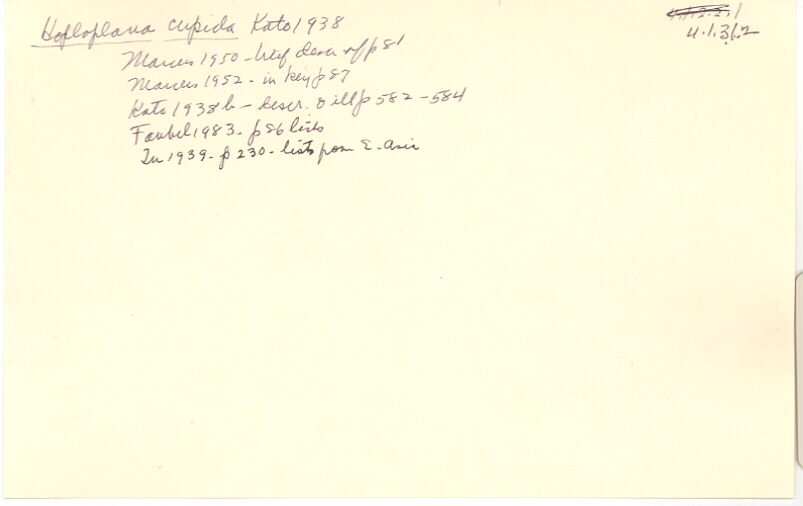 Hoploplana cupida Kato 1938
4.1.3.1.2
Marcus 1950 - brief descr p 81
Marcus 1952 - in key p 87
Kato 1938b - descr. & ill p 582 - 584
Faubel 1983 - p 86 lists
Tu 1939 - p 230 - lists from E. Asia